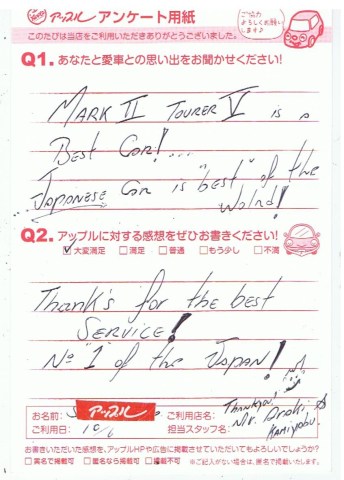 アップル アンケート用紙
ご協力よろしくお願いします♪
このたびは当店をご利用いただきありがとうございました。
Q1. あなたと愛車との思い出をお聞かせください!
MARK II TOURER V is a
Best Car!....
JAPANESE Car is "best" of the
Wolrd!
Q2. アップルに対する感想をぜひお書きください!
☑大変満足 □満足 □普通 □もう少し □不満
Thank's for the best
SERVICE!
№ 1 of the JAPAN!
Thankyou!
Mr. Araki
KAMIYABU.
お名前: アップル ご利用店名:
ご利用日: 10/6 担当スタッフ名:
お書きいただいた感想を、アップルHPや広告に掲載させていただいてもよろしいでしょうか?
□実名で掲載可 □匿名なら掲載可 □掲載不可 ※ご記入がない場合は、匿名で掲載いたします。